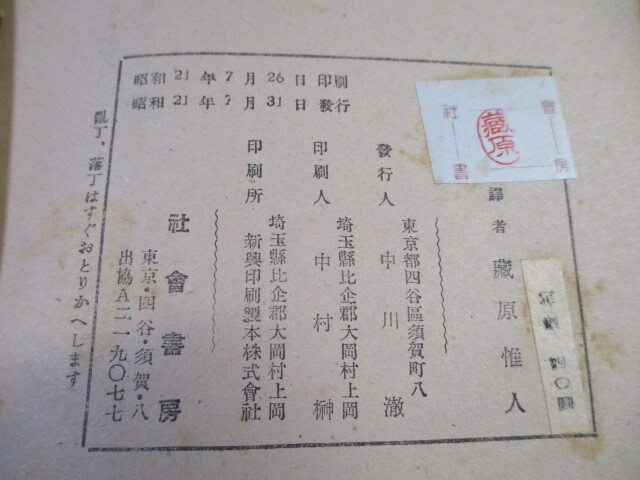 昭和21年7月26日印刷
昭和21年7月31日發行
社會書房
藏原
定價 四〇圓
譯者 藏原惟人
東京都四谷區須賀町八
發行人 中川澈
埼玉縣比企郡大岡村上岡
印刷人 中村榊
埼玉縣比企郡大岡村上岡
印刷所 新興印刷製本株式會社
社會書房
東京・四谷・須賀・八
出協A二一九〇七七
亂丁、落丁はすぐおとりかへします